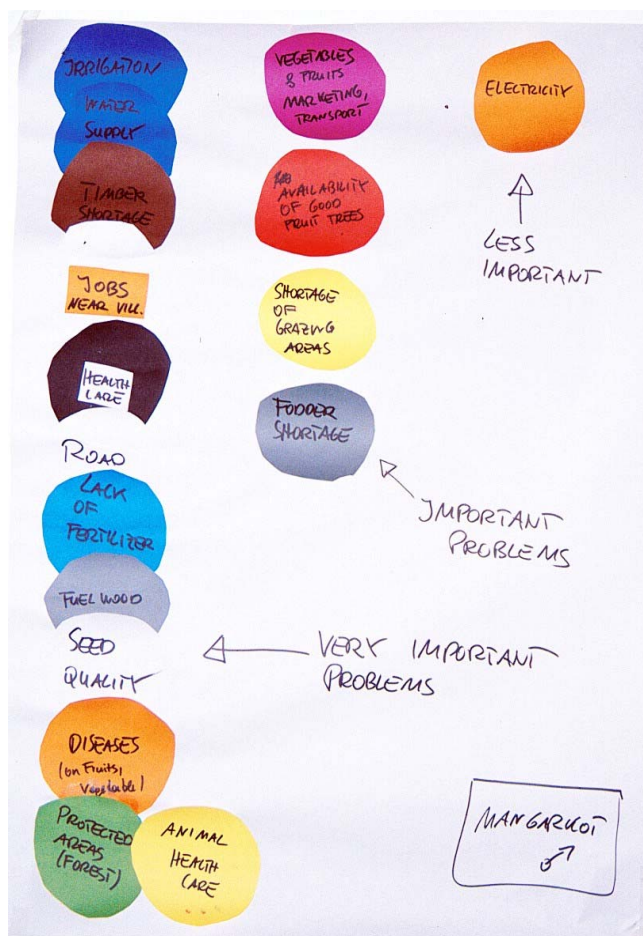 IRRIGATION
WATER
SUPPLY
TIMBER
SHORTAGE
JOBS
NEAR VILL.
HEALTH
CARE
ROAD
LACK
OF
FERTILIZER
FUEL WOOD
SEED
QUALITY
DISEASES
(on Fruits,
Vegetable)
PROTECTED
AREAS
(FOREST)
ANIMAL
HEALTH
CARE
VEGETABLES
& FRUITS
MARKETING,
TRANSPORT
AVAILABILITY
OF GOOD
FRUIT TREES
SHORTAGE
OF
GRAZING
AREAS
FODDER
SHORTAGE
IMPORTANT
PROBLEMS
VERY IMPORTANT
PROBLEMS
ELECTRICITY
LESS
IMPORTANT
MANGARKOT
♂